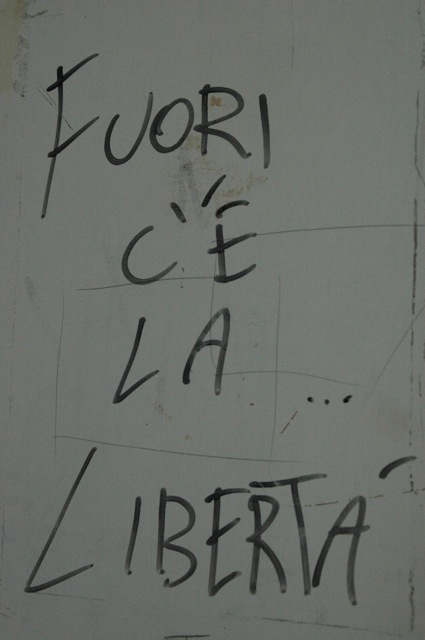 FUORI
C'É
LA ...
LIBERTÁ